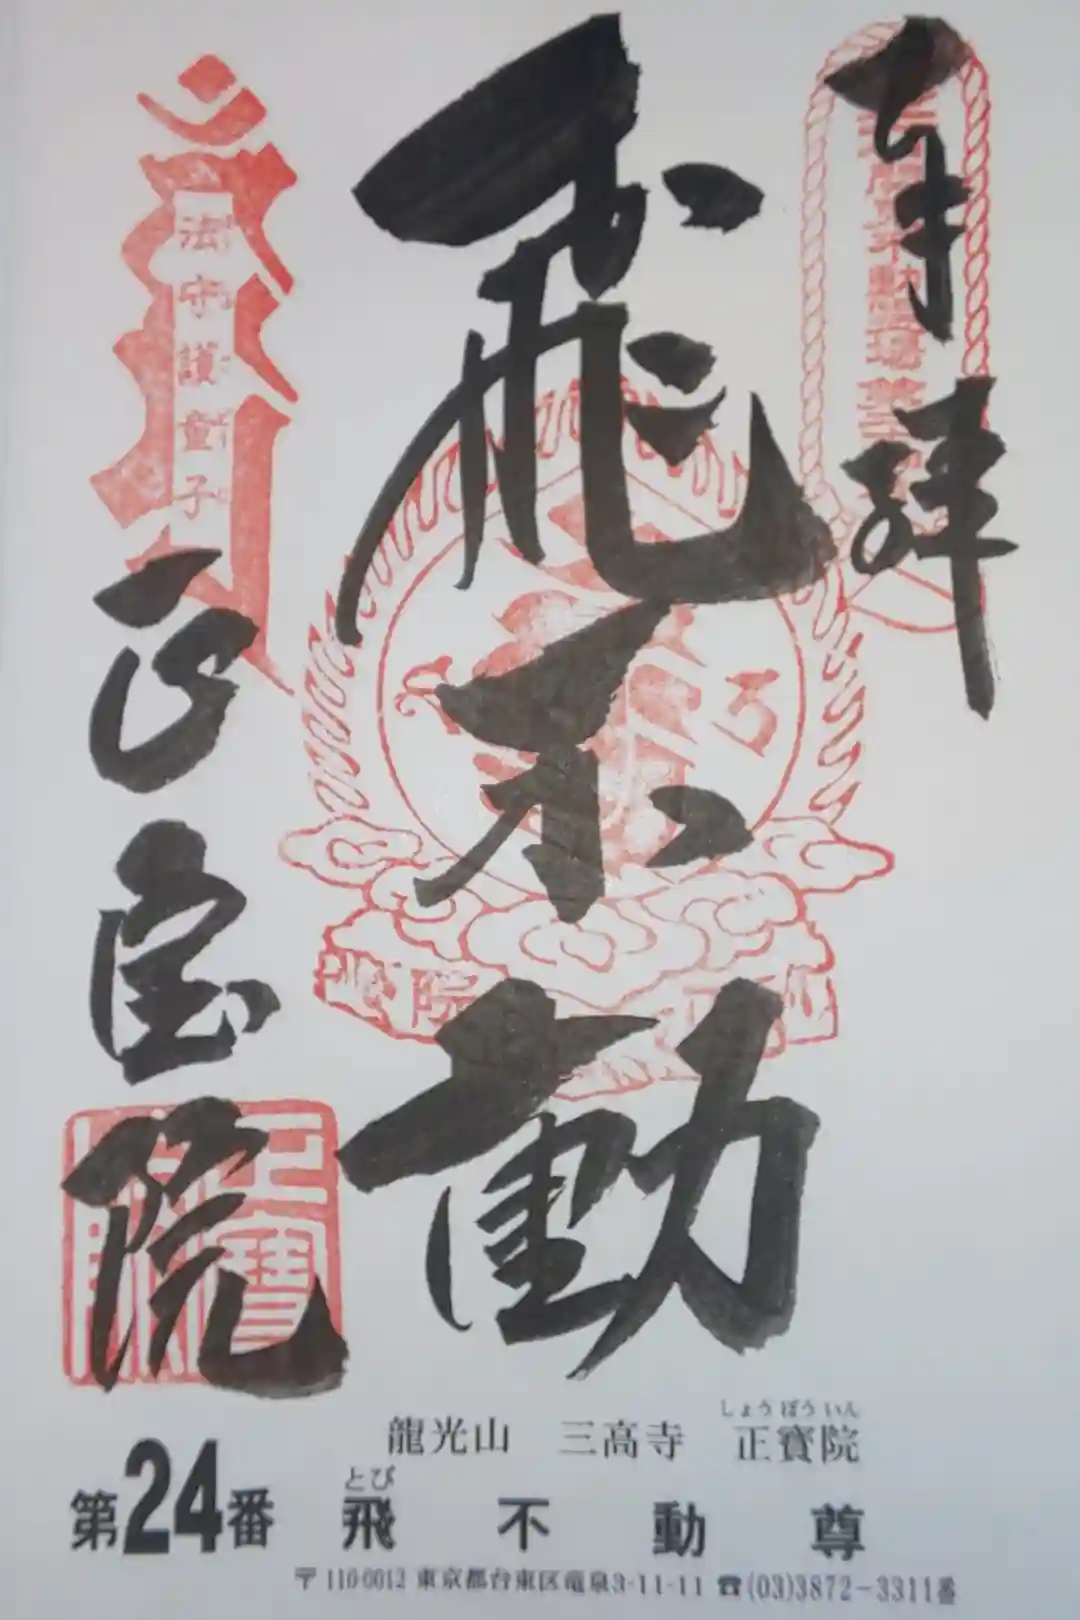 奉拝
飛不動
法守護童子
正宝院
院
正寶
龍光山 三高寺 正寶院
しょうぼういん
とび
第24番 飛不動尊
〒110-0012 東京都台東区竜泉3-11-11 ☎(03)3872-3311番